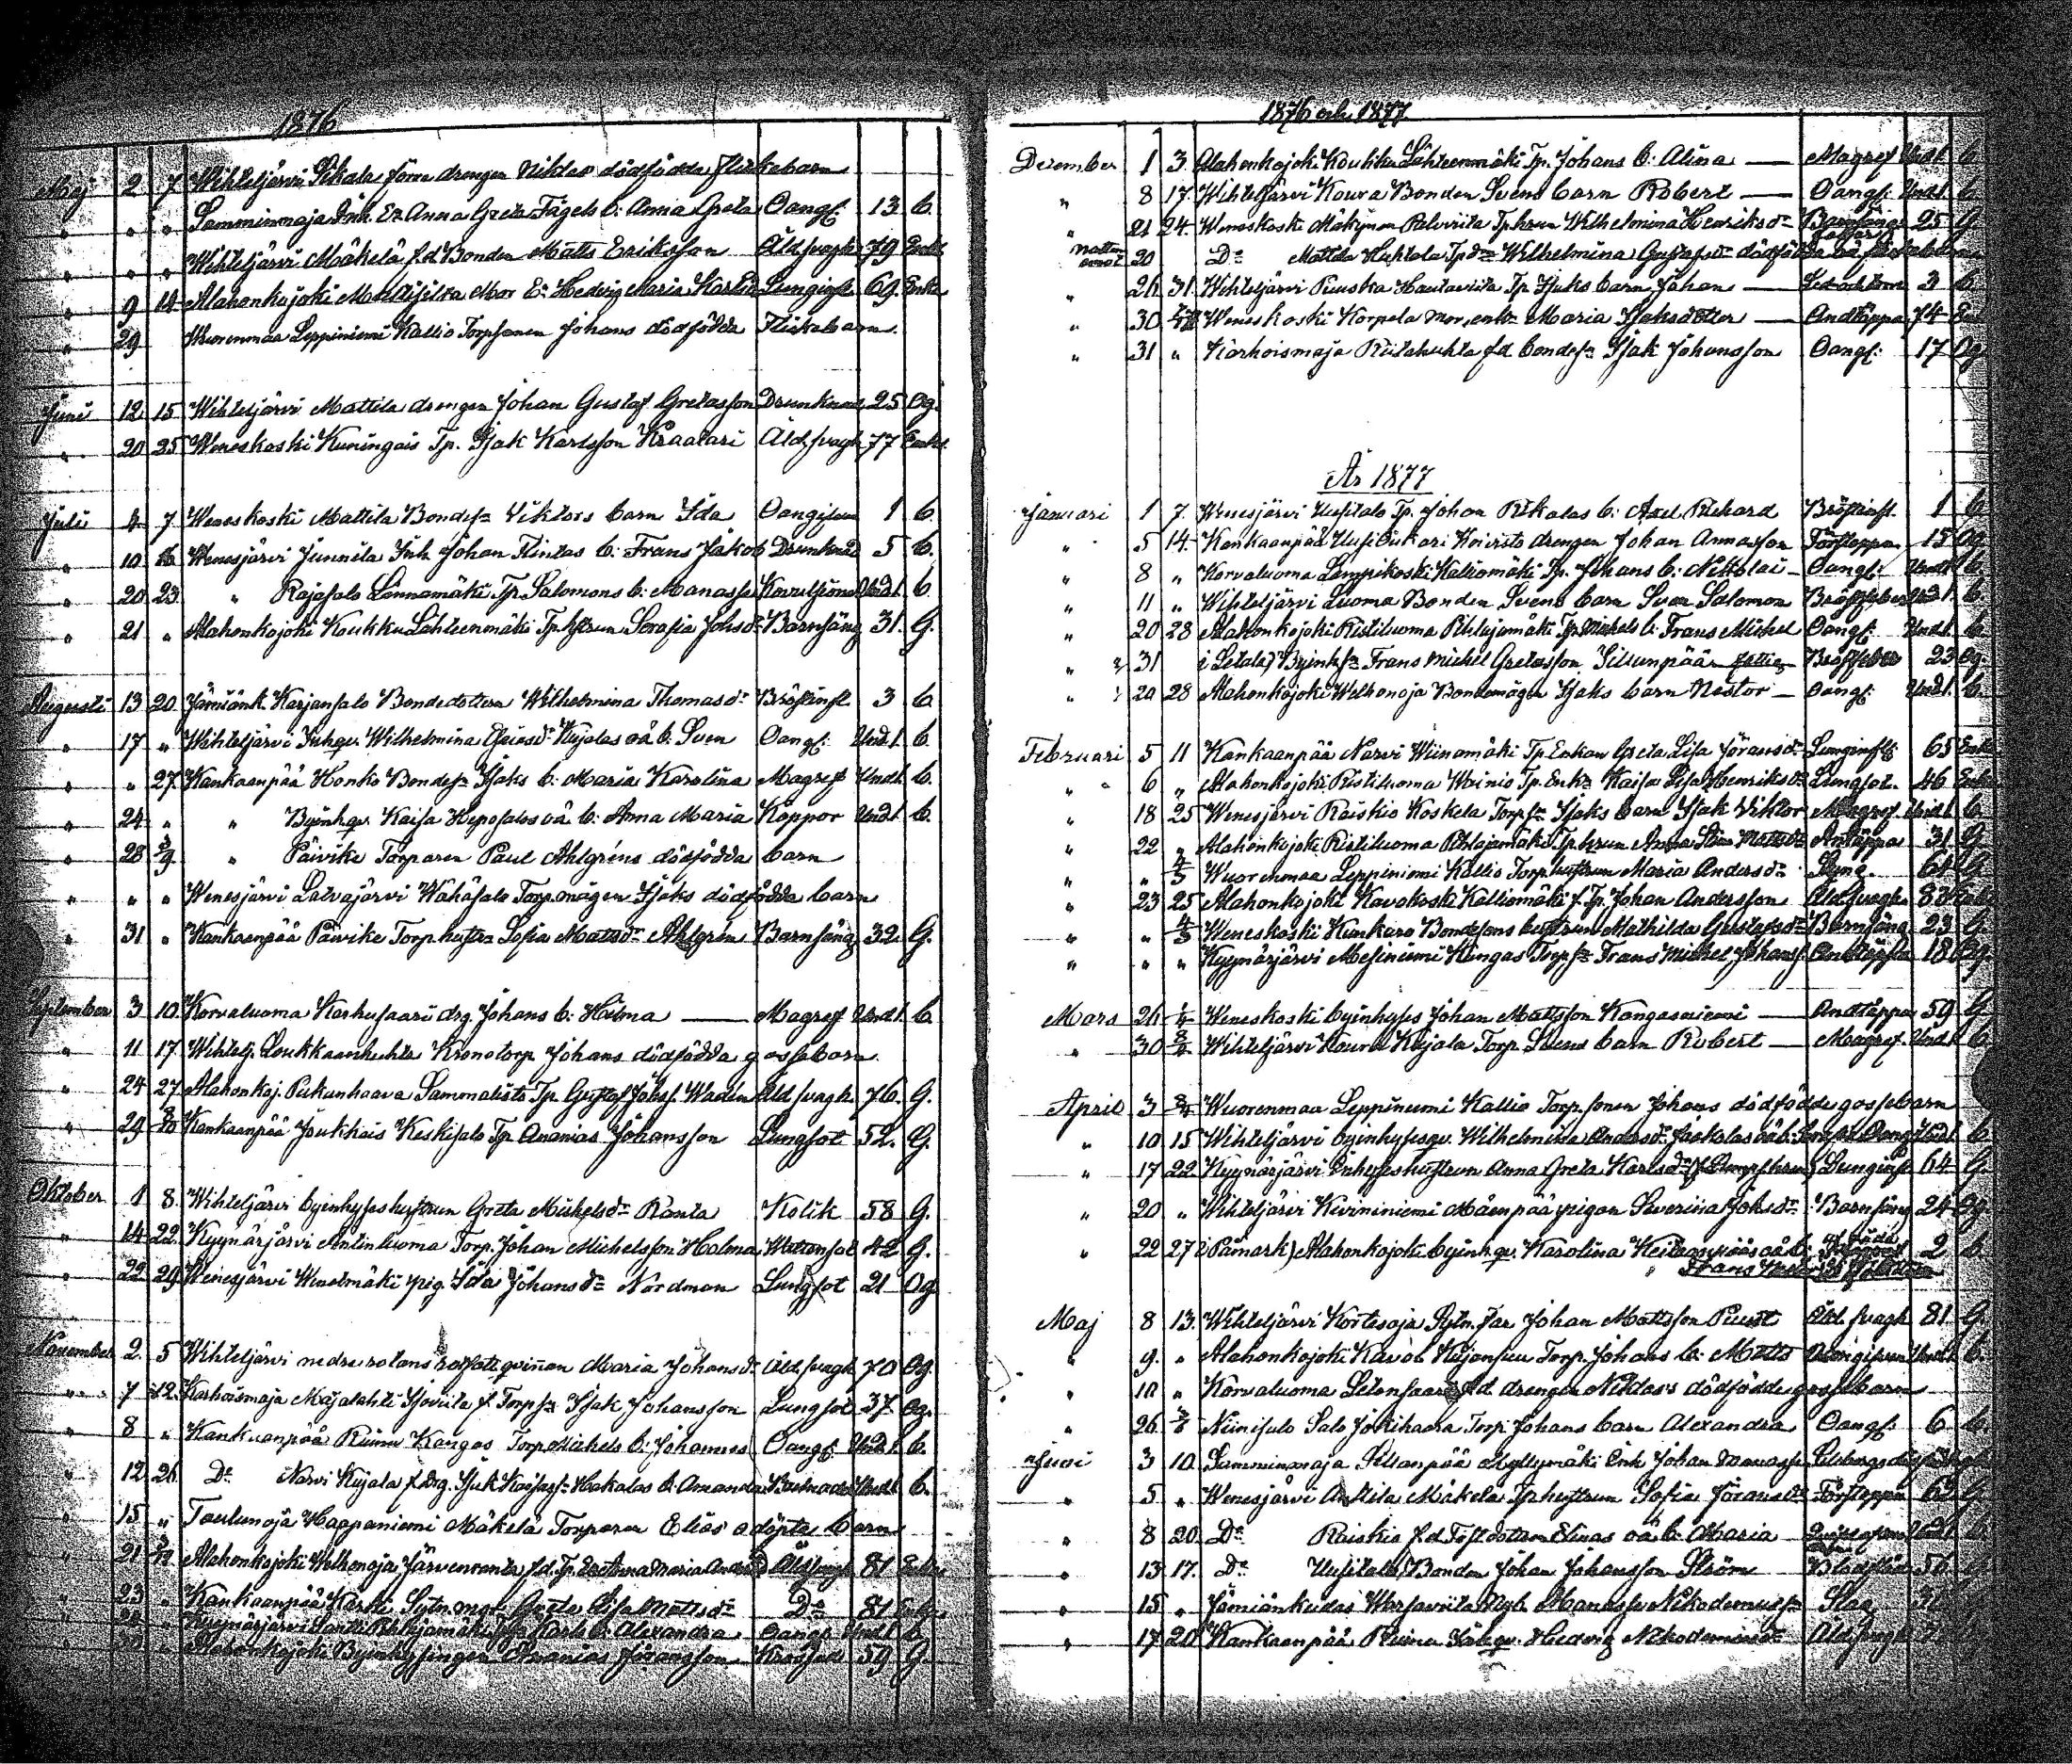 1876
Maj 2 7 Wihteljärvi Sikala förra drengen Niklas dödfödda flickebarn
" " " Samminmaja Inh. Ea Anna Greta Fägels b: Anna Greta Oangf: 13 b.
" " " Wihteljärvi Mäkelä f.d Bonden Matts Eriksson Åld.svagh 79 Enkl
" 9 14 Alahonkojoki Mor E: Hedvig Maria Lunginfl. 69 Enka
" 29 Wuorenmaa Leppiniemi Kallio Torpsonen Johans dödfödda Flickebarn
Juni 12 15 Wihteljärvi Mattila drengen Johan Gustaf Gretasson Drunknad 25 Og.
" 20 25 Weneskoski Kuningais Tp. Isak Karlsson Kraatari Åld.svagh 77 Enkl
Juli 4 7 Weneskoski Mattila Bondesn Viktors barn Ida Oangifven 1 b.
" 10 16 Wenesjärvi Junnila Inh. Johan Flintas b: Frans Jakob Drunknad 5 b.
" 20 23 " Rajasalo Linnamäki Tp. Salomons b: Manasse Und.1 b.
" 21 " Alahonkojoki Koukku Lähteenmäki Tp.hstrun Serafia Johsdr Barnsäng 31. G.
Augusti 13 20 Jämiänk. Karjansalo Bondedottern Wilhelmina Thomasdr Bröstinfl. 3 b.
" 17 " Wihteljärvi Inhqv. Wilhelmina Eliasdr Kujalas oä b. Sven Oangf: Und.1 b.
" " 27 Kankaanpää Honko Bondesn Isaks b: Maria Karolina Magref Und.1 b.
" 24 " " Byinhqv. Kaisa Heposalos oä b: Anna Maria Koppor Und.1 b.
" 28 3/9 " Päivike Torparen Paul Ahlgréns dödfödda barn
" " " Wenesjärvi Latvajärvi Wähäsalo Torp.mågen Isaks dödfödda barn
" 31 " Kankaanpää Päivike Torphustr Sofia Matsdr Ahlgrén Barnsäng 32. G.
September 3 10 Korvaluoma Karhusaari drg. Johans b: Hilma — Magref Und.1 b.
" 11 17 Wihtelj. Loukkaanhuhta Kronotorp. Johans dödfödda gossebarn
" 24 27 Alahonkoj. Pukanhaava Sammalisto Tp. Gustaf Johsf. Waden Åld.svagh. 76. G.
" 29 8/10 Kankaanpää Joukkois Keskisalo Tp. Ananias Johansson Lungsot 52. G.
Oktober 1 8 Wihteljärvi byinhyseshustrun Greta Michelsdr Ranta Kolik 58 G.
" 14 22 Kyynärjärvi Antinluoma Torp. Johan Michelsson Holma Wattensot 42 G.
" 22 29 Wenesjärvi pig. Ida Johansdr Nordman Lungsot 21 Og
November 2. 5 Wihteljärvi nedre rotans rotfattigqvinnan Maria Johansdr Åld.svagh 70 Og.
" 7 12 Karhoismaja Majalahti f. Torpsn Isak Johansson Lungsot 37. Og.
" 8 " Kankaanpää Ruina Kangas Torp Michels b: Johannes Oangf: Und.1 b.
" 12 26 Do Narvi Kujala f.drg. Isak Hakalas b. Amanda Und.1 b.
" 15 " Taulunoja Haapaniemi Mäkelä Torparen Elias odöpta barn
" 21 Alahonkojoki Welhonoja Järvenranta f.d. Tp. Anna Maria Åld.svagh 81 Enka
" 23 " Kankaanpää Kärki Sytn.mor Greta Lisa Mattsdr Do 81 Enka
" Kyynärjärvi Karls b: Alexandra Oangf. Und.1 b.
" Alahonkojoki Byinhysingen Ananias Johansson 59 G.
1876 och 1877
December 1 3 Alahonkojoki Koukku Lähteenmäki Tp. Johans b: Alina — Magref Und.1 b.
" 8 17 Wihteljärvi Koura Bonden Svens barn Robert — Oangf: Und.1 b.
" 21 24 Weneskoski Mäkynen Palvriita Tp.hrun Wilhelmina Henriksdr 25 G.
20 Do Mattila Huhtala Tp.dr Wilhelmina Gustafsdr dödfödda oä flickebarn
" 26 31 Wihteljärvi Puuska Hautaviita Tp. Isaks barn Johan — 3 b.
" 30 Weneskoski Korpela mor, enk. Maria Isaksdotter — Andtäppa 74 En
" 31 " Karhoismaja Riitahuhta f.d bondesn Isak Johansson Oangf: 17 Og
År 1877
Januari 1 7 Wenesjärvi Uusitalo Tp. Johan Rikalas b: Axel Richard Bröstinfl. 1 b
" 5 14 Kankaanpää Koivisto drengen Johan Annasson Törstoppen 15 Og
" 8 " Korvaluoma Lampikoski Kalliomäki Tp. Johans b: Nikolai — Oangf: Und.1 b.
" 11 " Wihteljärvi Luoma Bonden Svens barn Svan Salomon Bröstfeber Und.1 b.
" 20 28 Alahonkojoki Ristiluoma Pihlajamäki Tp. Michels b: Frans Michel Oangf: Und.1 b.
" 31 (i Letala) Byinhsn Frans Michel Gretasson Silsunpää Bröstfeber 23 Og
" 20 28 Alahonkojoki Welhonoja Bondemågen Isaks barn Nestor — Oangf: Und.1 b.
Februari 5 11 Kankaanpää Narvi Wiinamäki Tp. Enkan Greta Lisa Göransdr Lunginfl: 65 Enka
" 6 " Alahonkojoki Ristiluoma Tp. Enkn Kaisa Lisa Henriksdr Lungsot. 46 Enka
" 18 25 Wenesjärvi Raiskio Koskela Torpsn Isaks barn Isak Viktor Magref. Und.1 b.
" 22 " Alahonkojoki Ristiluoma Pihlajamäki Tp.hrun Anna Lisa Mattsdr Andtäppa 31 G.
" " 4/3 Wuorenmaa Leppiniemi Kallio Torp.hustrun Maria Andersdr Lung. 61 G.
" 23 25 Alahonkojoki Kavokoski Kalliomäki f. Tp. Johan Andersson Åld.svagh. 83 Enkl
" " 4/3 Weneskoski Kunkaro Bondesons hustrun Mathilda Gustafsdr Barnsäng 23 G.
" " " Kyynärjärvi Mesiniemi Kangas Torpsn Frans Michel Johansf. Andtäppa 18 Og.
Mars 26 1/4 Weneskoski byinhyses Johan Mattsson Kangasniemi — Andtäppa 59 G.
" 30 8/4 Wihteljärvi Koura Kujala Torp. Svens barn Robert — Magref. Und.1 b.
April 3 8/4 Wuorenmaa Leppiniemi Kallio Torp.sonen Johans dödfödde gossebarn
" 10 15 Wihteljärvi byinhysesqv. Wilhelmina Andersdr Jaakolas oä b. Und.1 b.
" 17 22 Kyynärjärvi Inhyseshustrun Anna Greta Karlsdr Lunginfl 64 G.
" 20 " Wihteljärvi Kivininiemi Mäenpää pigan Severina Johsdr Barnsäng 24 Og.
" 22 27 (i Påmark) Alahonkojoki byinh.qv. Karolina oä b: 2 b.
Maj 8 13. Wihteljärvi Kortesoja Sytn. far Johan Mattsson Puust Åld.svagh 81 G.
" 9. " Alahonkojoki Torp. Johans b: Matts Oangifven Und.1 b.
" 10 " Korvaluoma Letonsaari f.d. drengen Niklas's dödfödde gossebarn
" 26 3/6 Niinisalo Salo Jokihaara Torp. Johans barn Alexandra Oangf: 6 b.
Juni 3 10. Samminmaja Silsanpää Myllymäki Inh Johan
" 5 " Wenesjärvi Anttila Mäkelä Tp.hustrun Sofia Göransdr Törstoppen 62 G.
" 8 20. Do Raiskio f.d oä b. Maria Und.1 b.
" 13 17. Do Uusitalo Bonden Johan Johansson Ström 56 G
" 15 " Jämiänkudas Manasse Nikodemussn Slag
" 17 20 Kankaanpää Ruina Inh.qv. Hedvig Nikodemusdr Åld.svagh